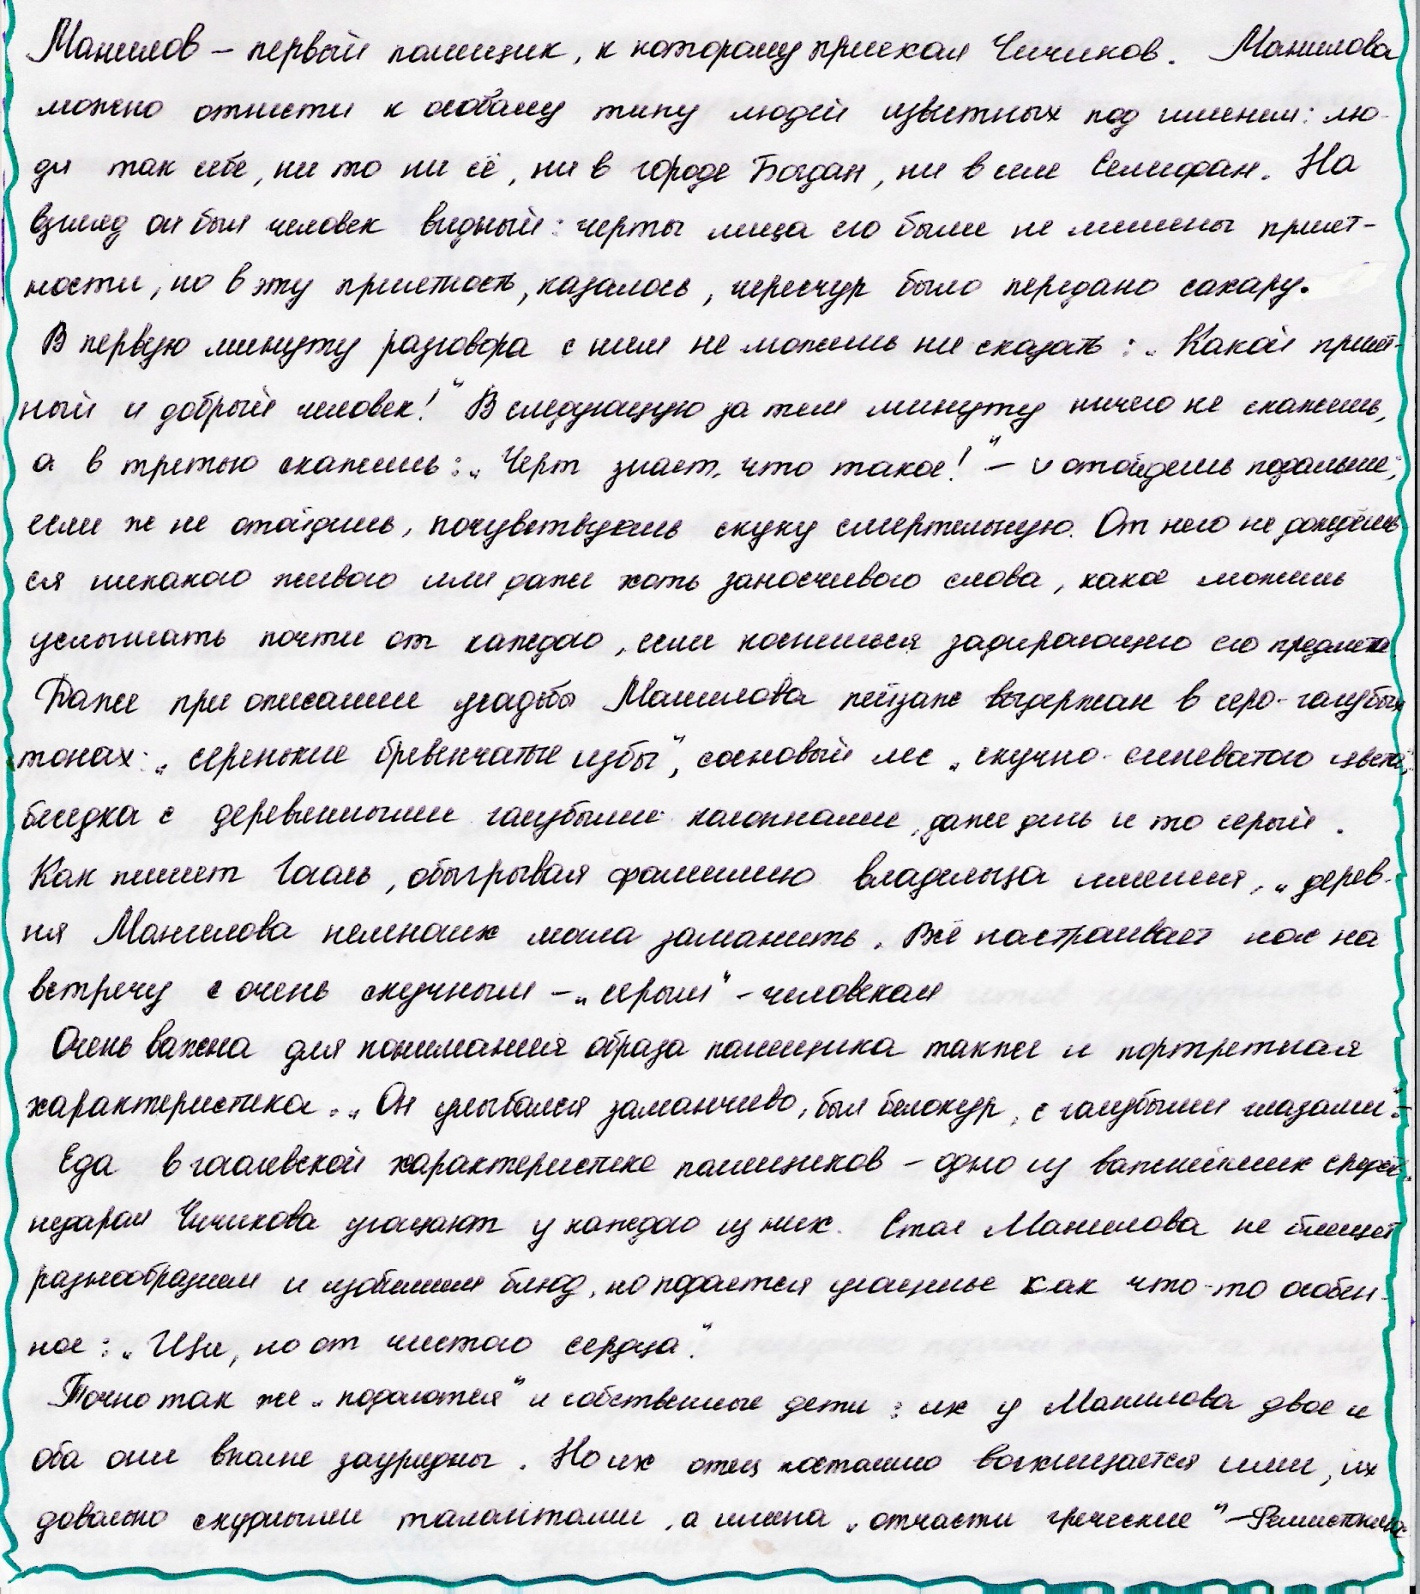 Манилов – первый помещик, к которому приехал Чичиков. Манилова
можно отнести к особому типу людей известных под именем: лю-
ди так себе, ни то ни сё, ни в городе Богдан, ни в селе Селифан. На
взгляд он был человек видный: черты лица его были не лишены прият-
ности, но в эту приятность, казалось, чересчур было передано сахару.
В первую минуту разговора с ним не можешь ни сказать: „Какой прият-
ный и добрый человек!" В следующую за тем минуту ничего не скажешь,
а в третью скажешь: „Черт знает, что такое!" – и отойдешь подальше;
если же не отойдешь, почувствуешь скуку смертельную. От него не дождёшь-
ся никакого живого или даже хоть заносчивого слова, какое можешь
услышать почти от каждого, если коснешься задирающего его предмета.
Даже при описании усадьбы Манилова пейзаж выдержан в серо-голубых
тонах: „серенькие бревенчатые избы", сосновый лес „скучно-синеватого цвета",
беседка с деревянными голубыми колоннами, даже день и то серый.
Как пишет Гоголь, обыгрывая фамилию владельца имения, „дерев-
ня Манилова немногих могла заманить. Всё настраивает нас на
встречу с очень скучным – „серым" - человеком
Очень важна для понимания образа помещика также и портретная
характеристика. „Он улыбался заманчиво, был белокур, с голубыми глазами".-
Еда в гоголевской характеристике помещиков – одно из важнейших средств,
недаром Чичикова угощают у каждого из них. Стол Манилова не блещет
разнообразием и изобилием блюд, но подается угощенье как что-то особен-
ное: „Щи, но от чистого сердца".
Точно так же „подаются" и собственные дети: их у Манилова двое и
оба они вполне заурядны. Но их отец постоянно восхищается ими, их
довольно скудными талантами, а имена „отчасти греческие" – Фемистоклюс